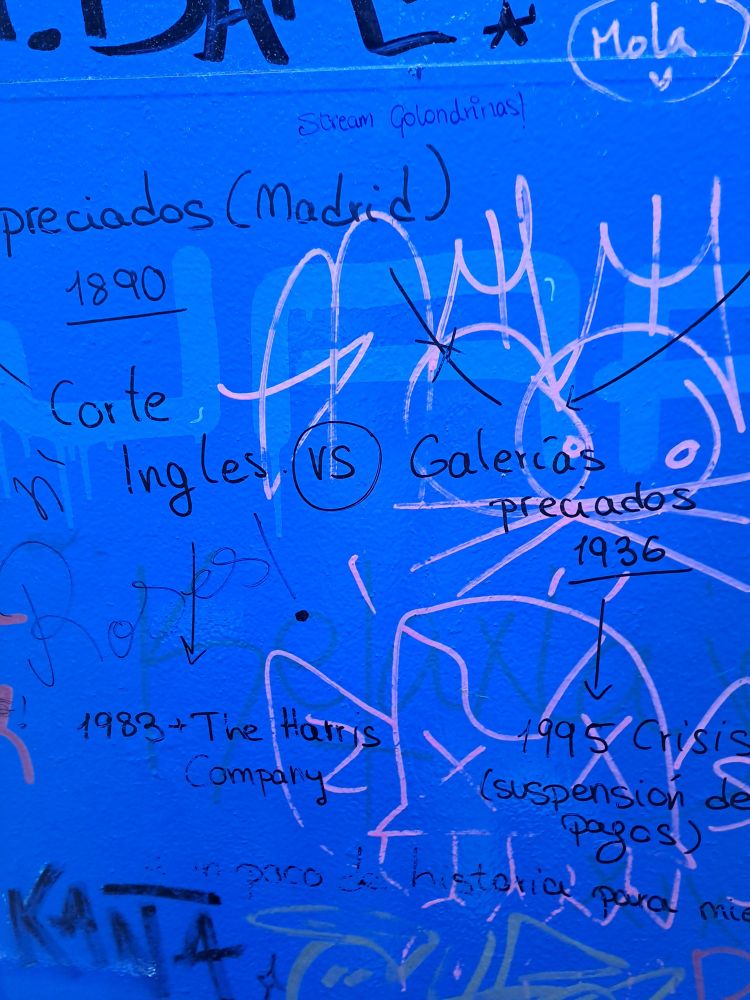 Mola
Stream Golondrinas!
preciados (Madrid)
1890
Corte
Ingles VS Galerías
preciados
1936
1983 → The Harris
Company
1995 Crisis
(suspensión de
pagos)
un poco de historia para mie
KANTA